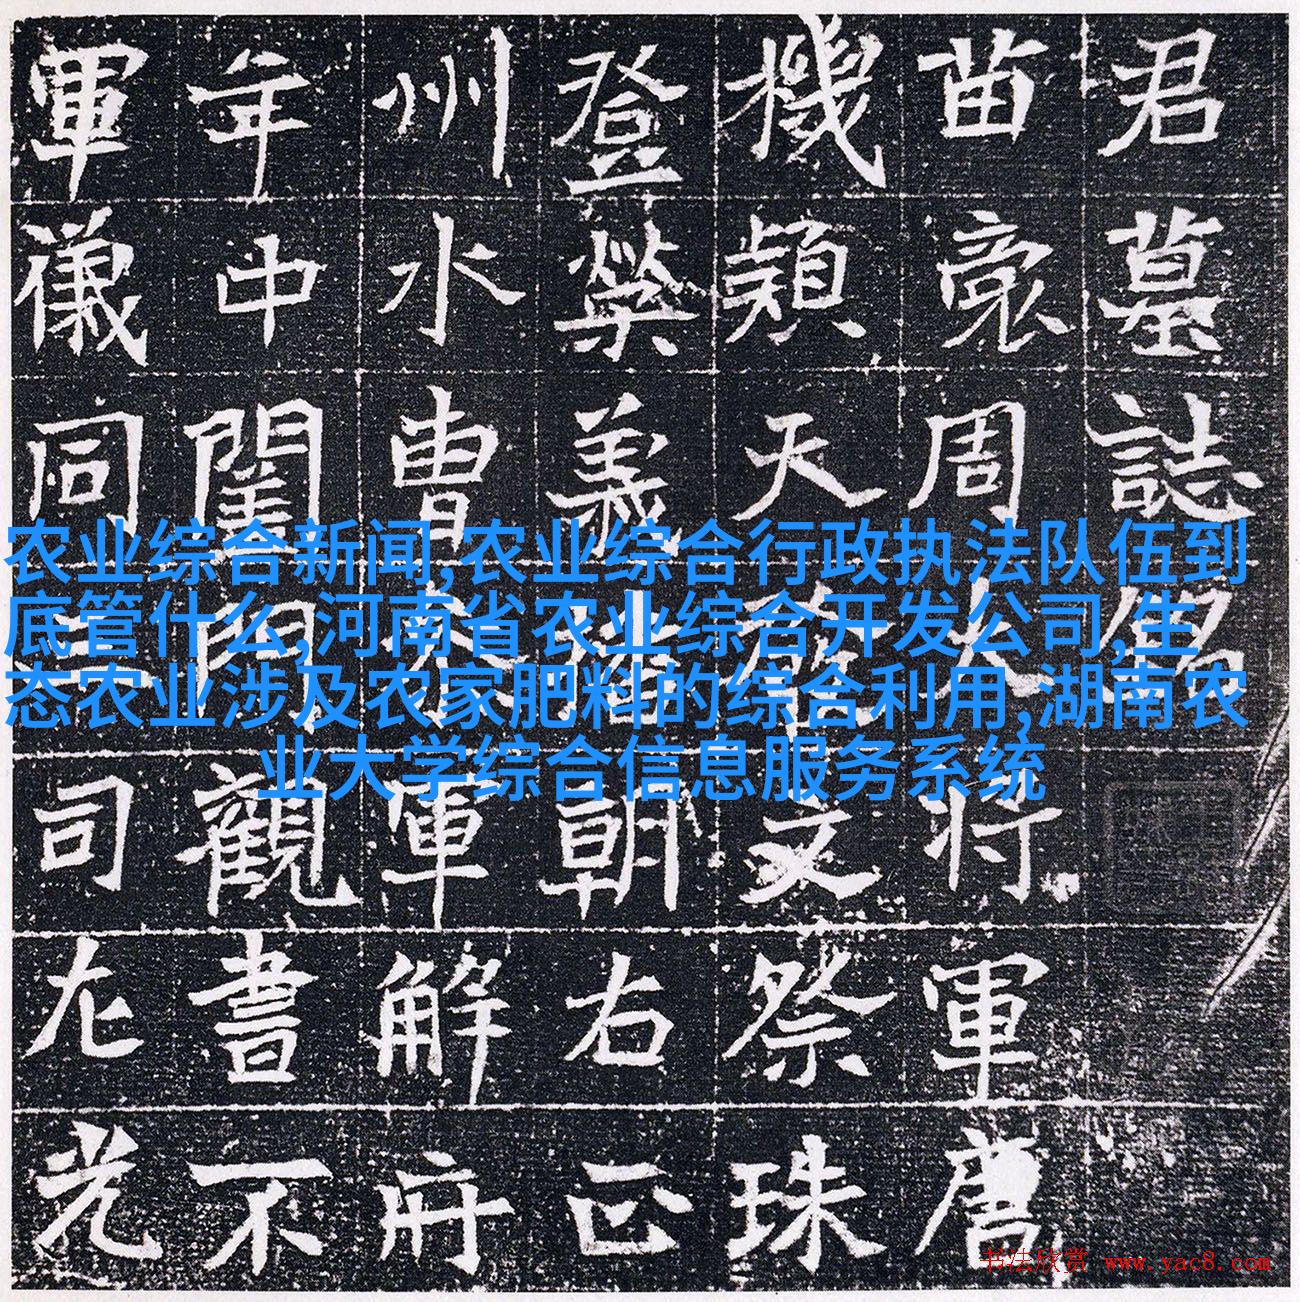 君墓誌銘
苗裔周大行軍唐
機穎天文祭珠
登榮義朝右正
州水曹軍解府
年中閨門觀書不
軍儀同三司左光
农业综合新闻,农业综合行政执法队伍到
底管什么,河南省农业综合开发公司,生
态农业涉及农家肥料的综合利用,湖南农
业大学综合信息服务系统
书法欣赏 www.yac8.com